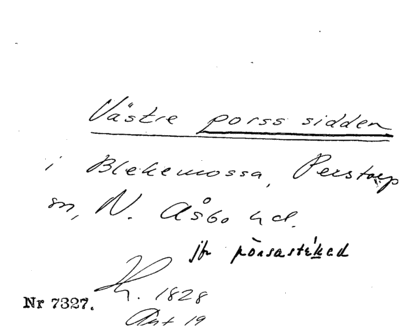 Västre porss sidden
i Blekemossa, Perstorp
sn, N. Åsbo hd.
jfr pörsastýked
Lh. 1828
Nr 7327.
Akt 19